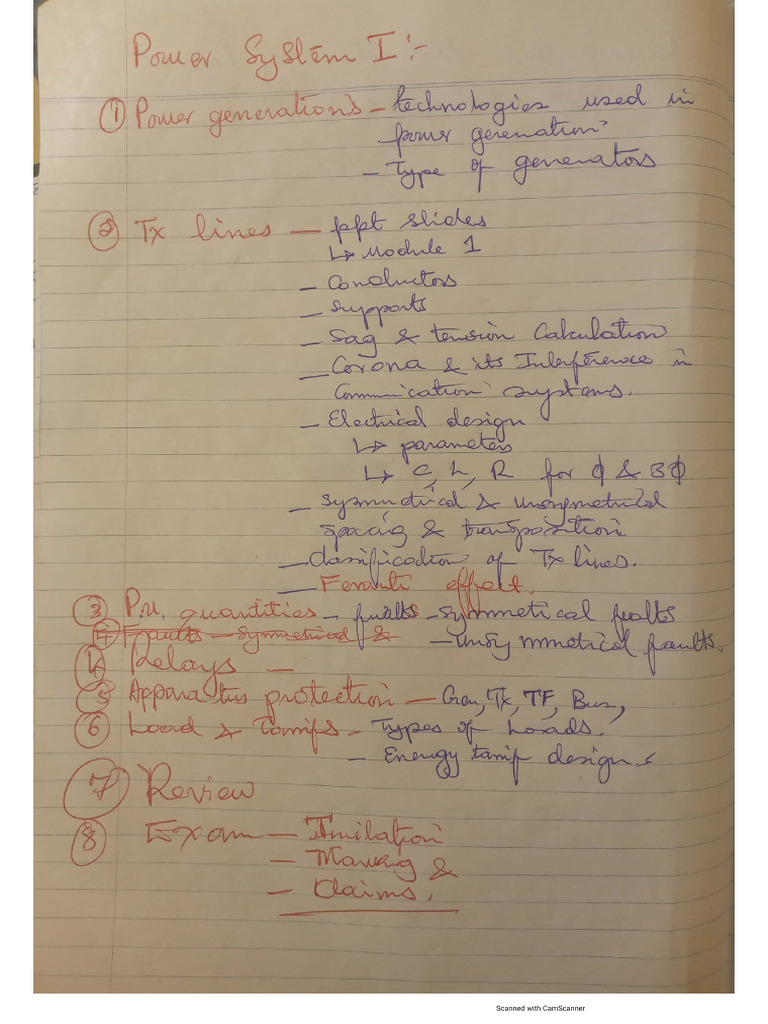 Power System I :-
① Power generations - technologies used in
power generation
- Type of generators
② Tx lines - ppt slides
↳ Module 1
- Conductors
- Supports
- Sag & tension Calculation
- Corona & its Interference in
Communication systems.
- Electrical design
↳ parameters
↳ C, L, R for ϕ & 3ϕ
- Symmetrical & Unsymmetrical
spacing & transposition
- Classification of Tx lines.
- Ferranti effect.
③ P.u. quantities - faults - symmetrical faults
④ Faults - Symmetrical & - Unsymmetrical faults.
④ Relays -
⑤ Apparatus protection - Gen, Tx, TF, Bus,
⑥ Load & Tariffs - Types of Loads.
- Energy tariff design.
⑦ Review
⑧ Exam -
- Marking &
- Claims.
Scanned with CamScanner